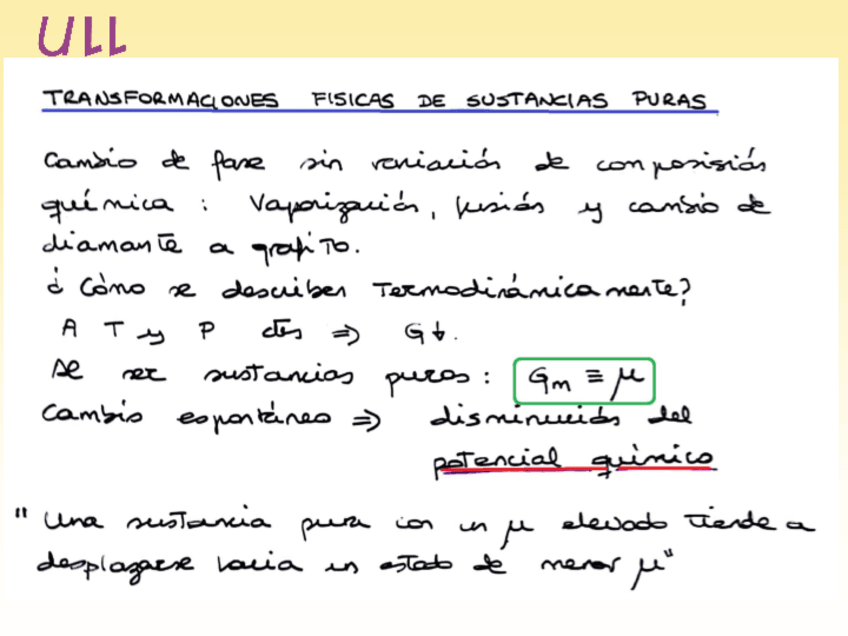 ULL
TRANSFORMACIONES FISICAS DE SUSTANCIAS PURAS
Cambio de fase sin variación de composisión
química : Vaporización, fusión y cambio de
diamante a grafito.
¿ Cómo se describen Termodinámicamente?
A T y P ctes ⇒ G↓.
Al ser sustancias puras : Gm ≡ μ
Cambio espontáneo ⇒ disminución del
potencial químico
" Una sustancia pura con un μ elevado tiende a
desplazarse hacia un estado de menor μ"